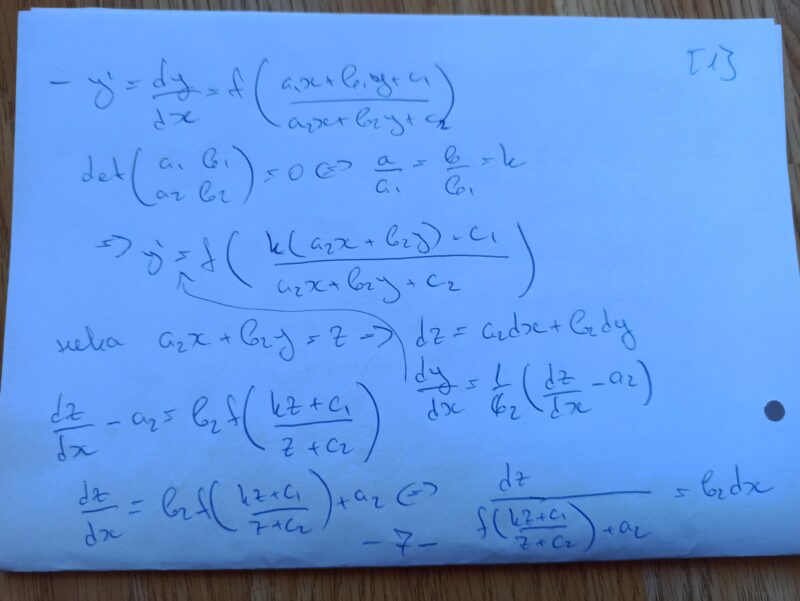 [1]
- y' = dy/dx = f((a₁x+b₁y+c₁)/(a₂x+b₂y+c₂))
det(a₁ b₁ / a₂ b₂) = 0 <=> a/a₁ = b/b₁ = k
=> y' = f((k(a₂x+b₂y)+c₁)/(a₂x+b₂y+c₂))
нека a₂x+b₂y = z => dz = a₂dx+b₂dy
dy/dx = 1/b₂ (dz/dx - a₂)
dz/dx - a₂ = b₂f((kz+c₁)/(z+c₂))
dz/dx = b₂f((kz+c₁)/(z+c₂)) + a₂ <=> dz/(f((kz+c₁)/(z+c₂))+a₂) = b₂dx
- 7 -